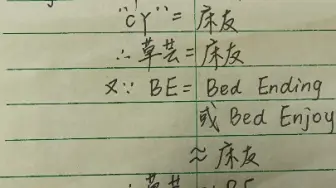 "CY"=床友
∴草芸=床友
又∵ BE= Bed Ending
或 Bed Enjoy
≈床友